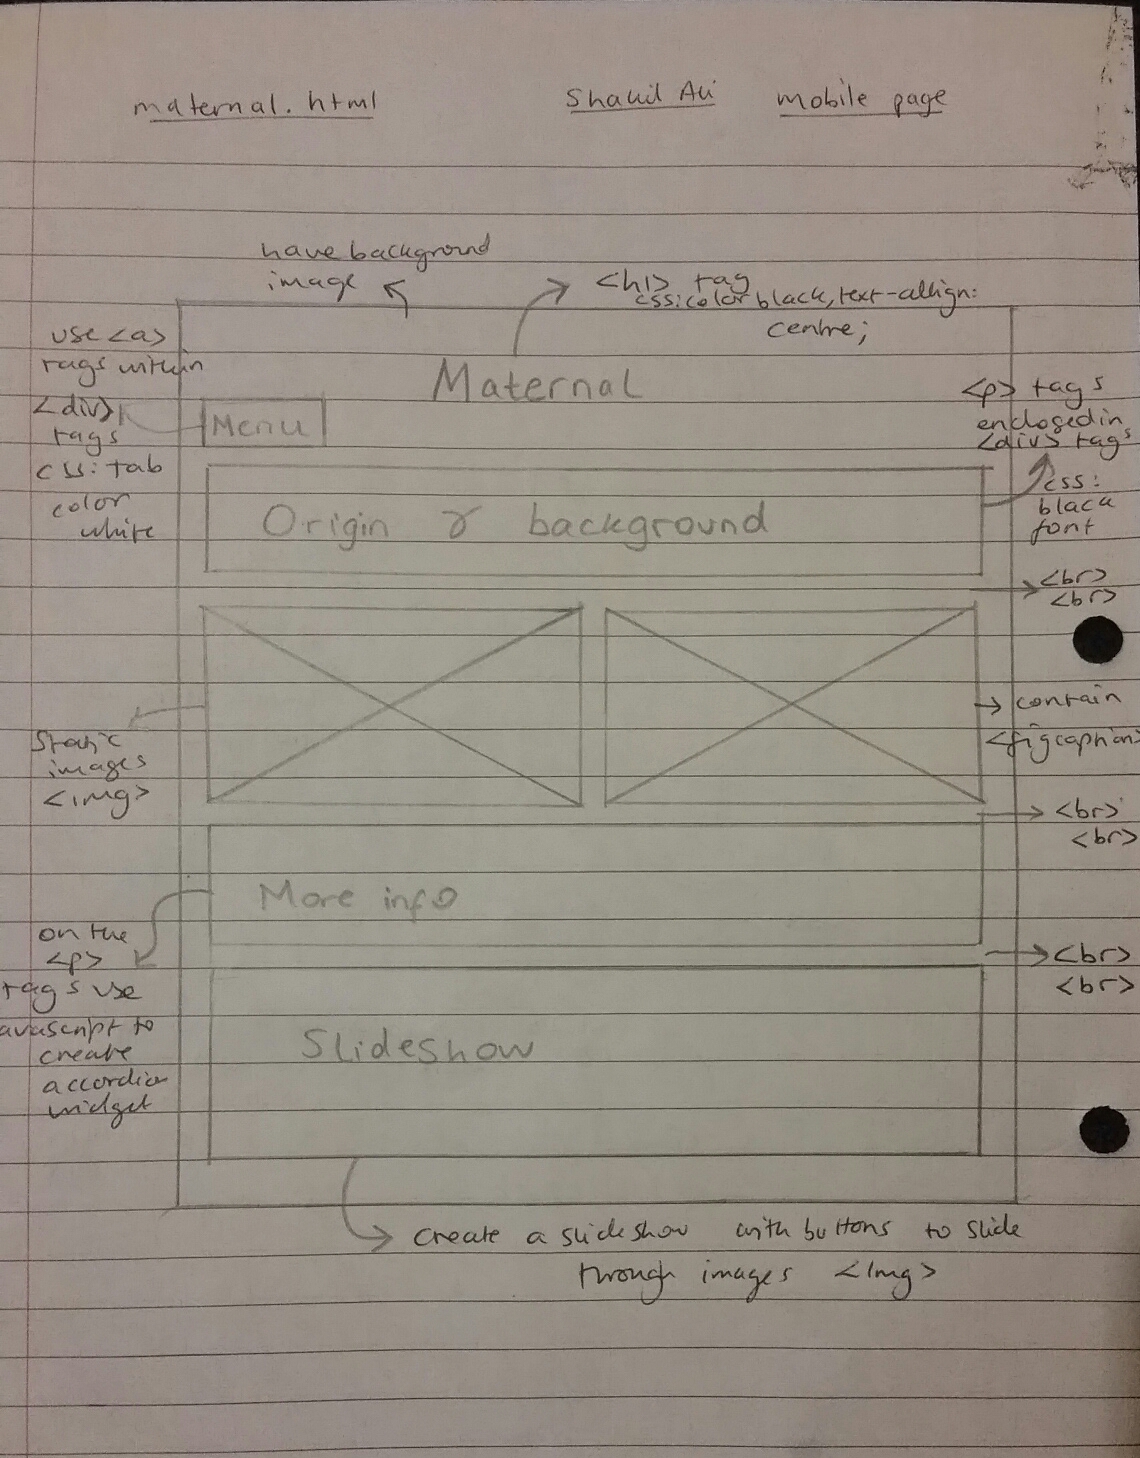 maternal.html
Shakil Ali
mobile page
have background
image
<h1> tag
css:color black, text-allign:
centre;
use <a>
tags within
<div>
tags
css: tab
color
white
Maternal
Menu
<p> tags
enclosed in
<div> tags
css:
black
font
Origin & background
<br>
<br>
Static
images
<img>
contain
<figcaption>
<br>
<br>
More info
on the
<p>
tags use
javascript to
create
accordion
widget
<br>
<br>
Slideshow
create a slideshow with buttons to slide
through images <img>